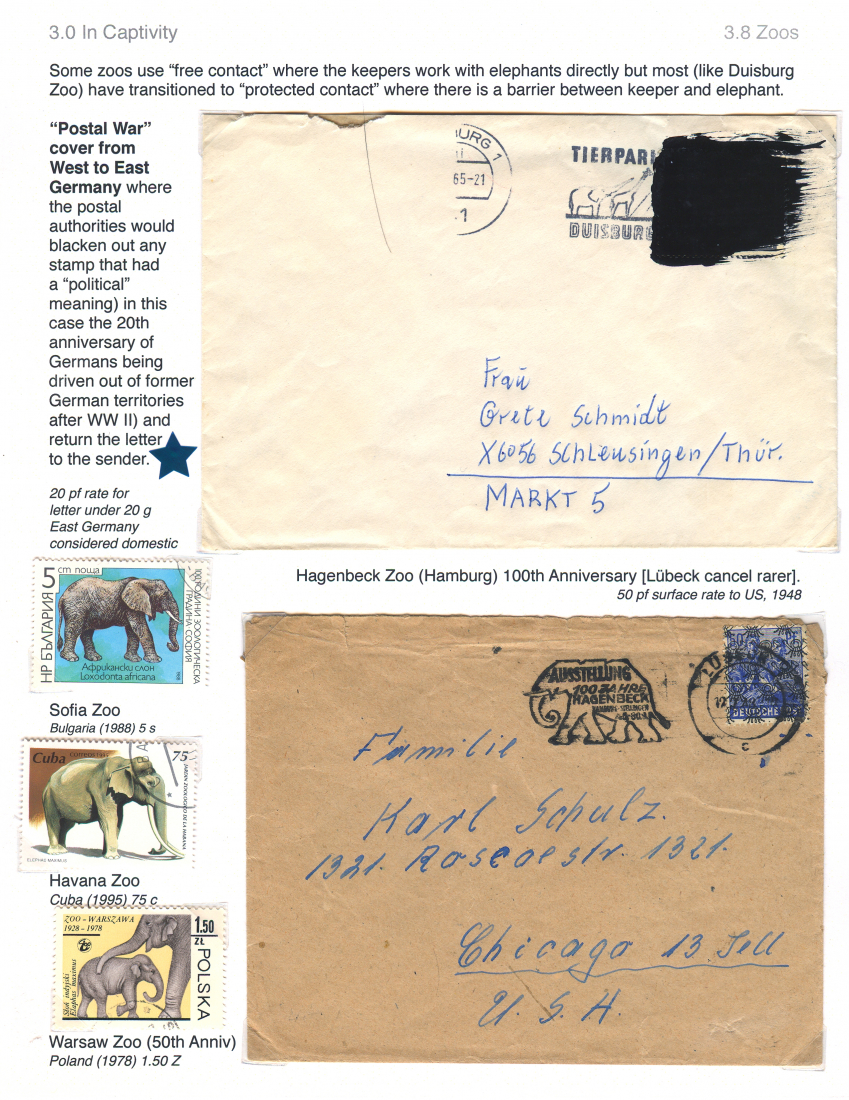 3.0 In Captivity
3.8 Zoos
Some zoos use “free contact” where the keepers work with elephants directly but most (like Duisburg
Zoo) have transitioned to “protected contact” where there is a barrier between keeper and elephant.
“Postal War”
cover from
West to East
Germany where
the postal
authorities would
blacken out any
stamp that had
a “political”
meaning) in this
case the 20th
anniversary of
Germans being
driven out of former
German territories
after WW II) and
return the letter
to the sender.
20 pf rate for
letter under 20 g
East Germany
considered domestic
BURG 1
65-21
TIERPARK
DUISBURG
Frau
Grete Schmidt
X6056 Schleusingen/Thür.
MARKT 5
Hagenbeck Zoo (Hamburg) 100th Anniversary [Lübeck cancel rarer].
50 pf surface rate to US, 1948
AUSSTELLUNG
100 JAHRE
HAGENBECK
HAMBURG-STELLINGEN
50 PF
DEUTSCHE
c
Familie
Karl Schulz.
1321. Roscoestr. 1321.
Chicago 13 Jell
U. S. A.
5 ст поща
НР БЪЛГАРИЯ
100 ГОДИНИ ЗООЛОГИЧЕСКА
ГРАДИНА-СОФИЯ
Африкански слон
Loxodonta africana
1988
Sofia Zoo
Bulgaria (1988) 5 s
Cuba CORREOS 1995
75
JARDIN ZOOLOGICO DE LA HABANA
ELEPHAS MAXIMUS
Havana Zoo
Cuba (1995) 75 c
ZOO - WARSZAWA
1928 - 1978
1.50
ZŁ
POLSKA
Słoń indyjski
Elephas maximus
Warsaw Zoo (50th Anniv)
Poland (1978) 1.50 Z